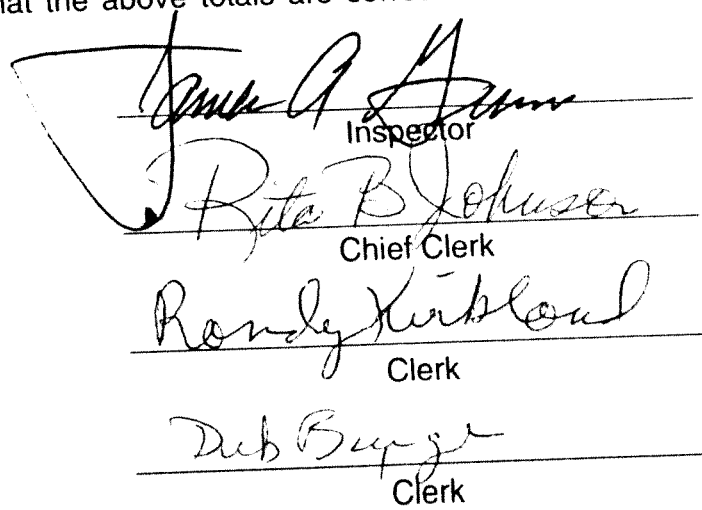 that the above totals are
James A
Inspector
Rita B Johnson
Chief Clerk
Randy Kirkland
Clerk
Deb
Clerk